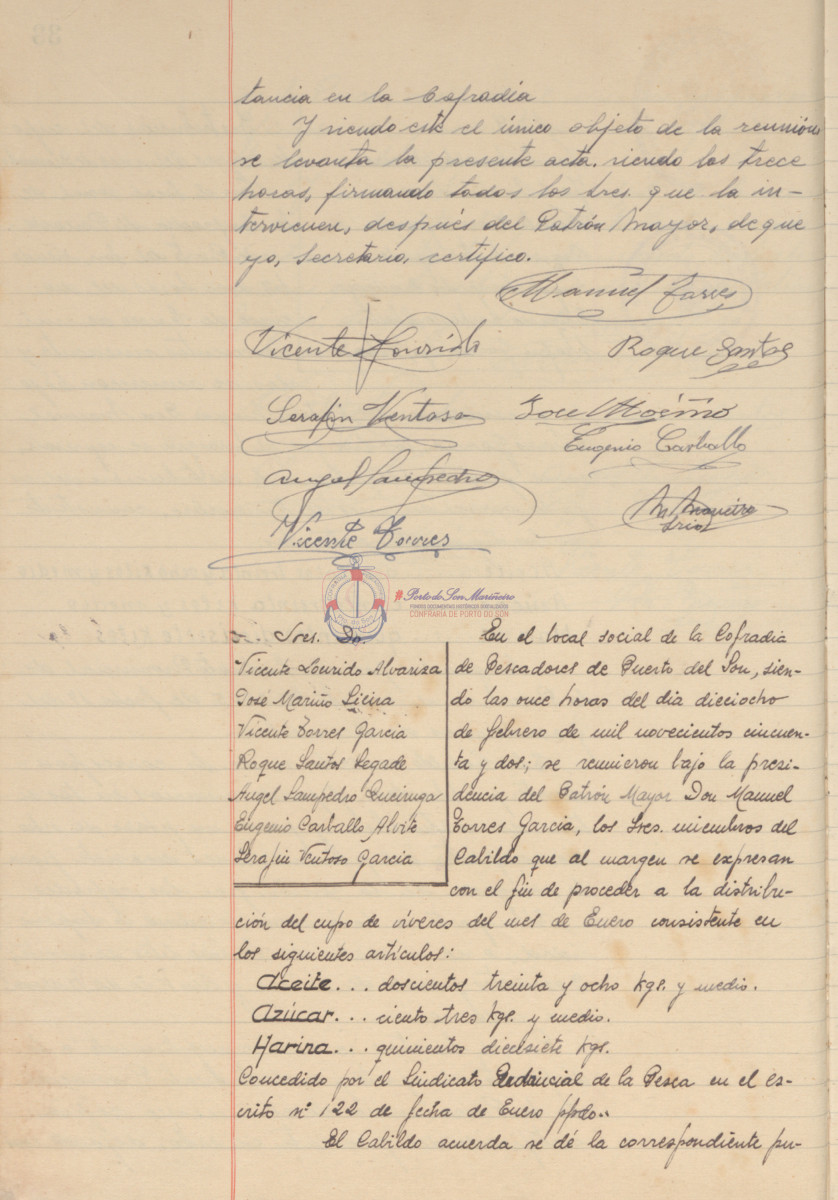 tancia en la Cofradía
Y siendo este el único objeto de la reunión
se levanta la presente acta, siendo las trece
horas, firmando todos los Sres. que la in-
tervienen, después del Patrón Mayor, de que
yo, Secretario, certifico.
Manuel Torres
Vicente Lourido
Roque Santos
Serafin Ventoso
Jose Mariño
Eugenio Carballo
Angel Sampedro
Vicente Torres
COFRADIA
#Porto do Son Mariñeiro
FONDOS DOCUMENTAIS HISTÓRICOS DIXITALIZADOS
CONFRARÍA DE PORTO DO SON
Sres. Dn.
Vicente Lourido Alvariza
José Mariño Lieira
Vicente Torres Garcia
Roque Santos Segade
Angel Sampedro Queiruga
Eugenio Carballo Alvite
Serafin Ventoso Garcia
En el local social de la Cofradia
de Pescadores de Puerto del Son, sien-
do las once horas del dia dieciocho
de febrero de mil novecientos cincuen-
ta y dos; se reunieron bajo la presi-
dencia del Patrón Mayor Don Manuel
Torres Garcia, los Sres. miembros del
Cabildo que al margen se expresan
con el fin de proceder a la distribu-
ción del cupo de víveres del mes de Enero consistente en
los siguientes artículos:
Aceite... doscientos treinta y ocho kgs. y medio.
Azúcar... ciento tres kgs. y medio.
Harina... quinientos diecisiete kgs.
Concedido por el Sindicato Provincial de la Pesca en el es-
crito nº 122 de fecha de Enero ppdo..
El Cabildo acuerda se dé la correspondiente pu-